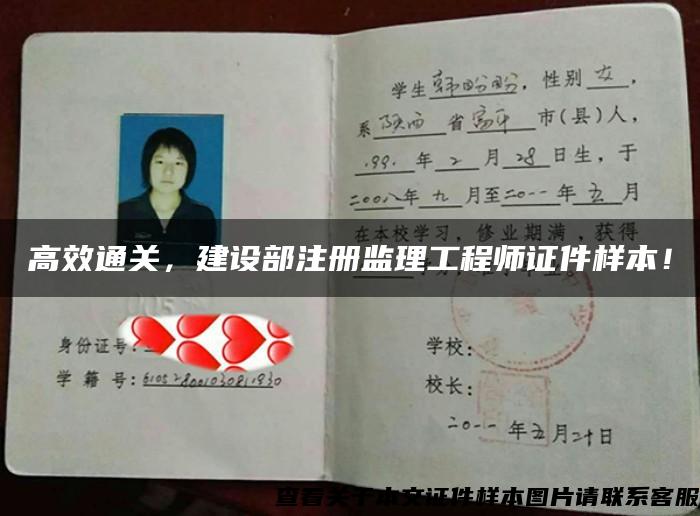 学生韩盼盼,性别女,
系陕西省富平市(县)人,
1991年2月28日生,于
二00八年九月至二0一一年五月
在本校学习,修业期满,获得
高效通关,建设部注册监理工程师证件样本!
身份证号:
学籍号:
学校:
校长:
二0一一年五月二十日
查看关于本文证件样本图片请联系客服